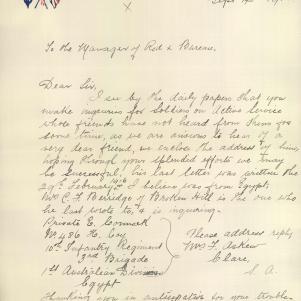 Sept 14
x
To the Manager of Red x Bureau.
Dear Sir,
I see by the daily papers that you
make inquiries for Soldiers on Active Service
whose friends have not heard from them for
some time, as we are anxious to hear of a
very dear friend, we enclose the address of him
hoping through your splended efforts we may
be successful, his last letter was written the
29th February 1916 I believe was from Egypt,
Mrs C. F. Berridge of Broken Hill is the one who
he last wrote to, & is inquiring.
Private E. Cormack
486 H. Coy
10th Infantry Regiment
3rd Brigade
1st Australian Division
Egypt
Please address reply
Mrs F. Askew
Clare,
S. A.
Thanking you in anticipation for your trouble